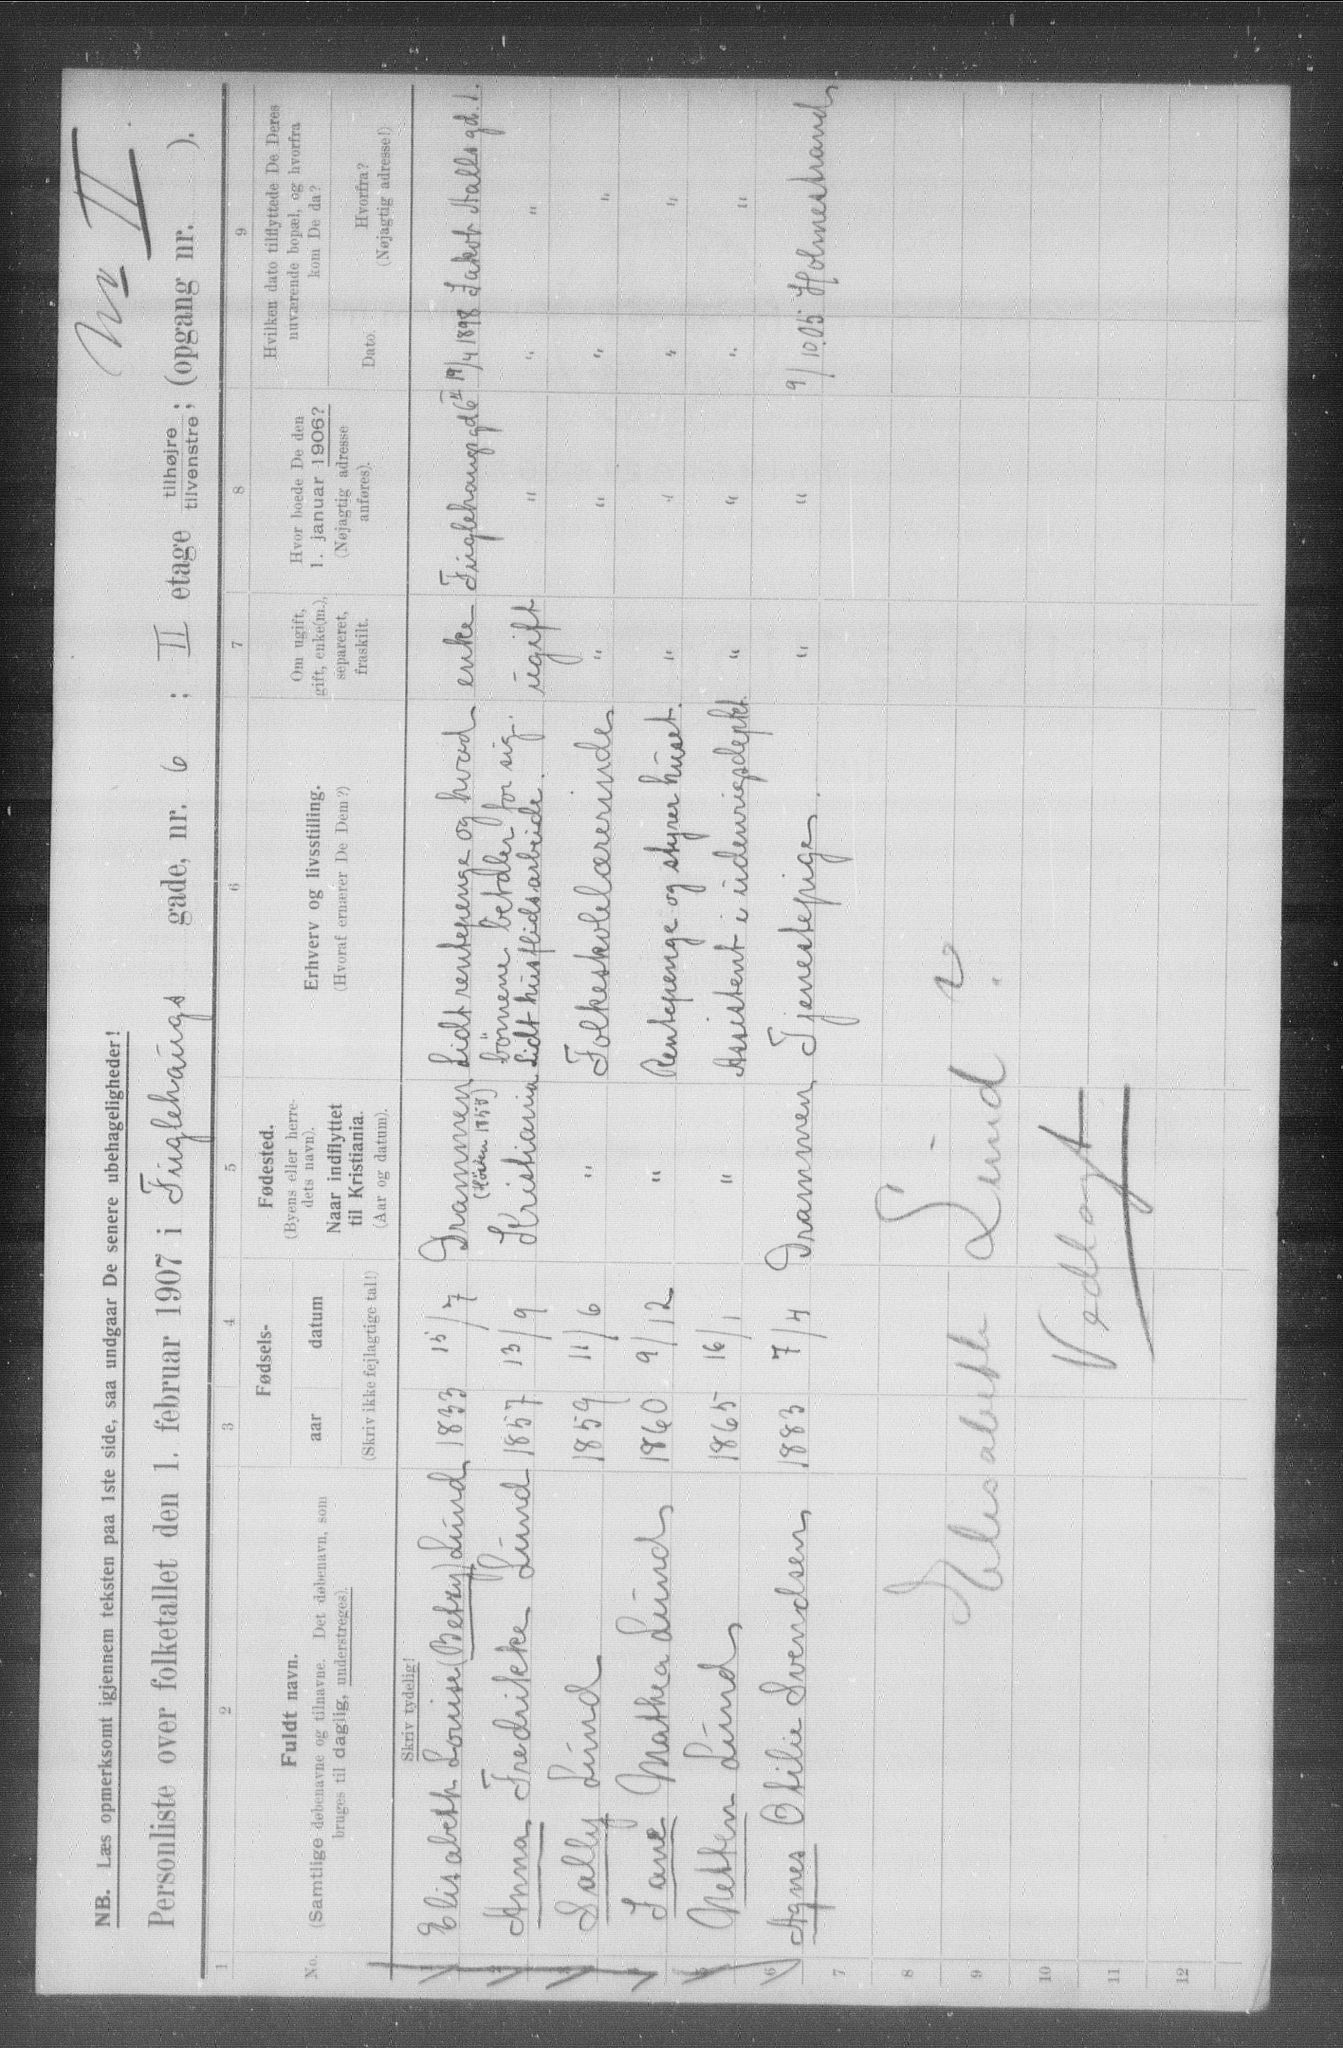 Nr II
NB. Læs opmerksomt igjennem teksten paa 1ste side, saa undgaar De senere ubehageligheder!
Personliste over folketallet den 1. februar 1907 i Fuglehaugs gade, nr. 6 ; II etage tilhøjre tilvenstre; (opgang nr. ).
1 2 3 4 5 6 7 8 9
No. Fuldt navn. (Samtlige døbenavne og tilnavne. Det døbenavn, som bruges til daglig, understreges).
Fødsels- aar datum (Skriv ikke fejlagtige tal!)
Fødested. (Byens eller herredets navn). Naar indflyttet til Kristiania. (Aar og datum).
Erhverv og livsstilling. (Hvoraf ernærer De Dem?)
Om ugift, gift, enke(m.), separeret, fraskilt.
Hvor boede De den 1. januar 1906? (Nøjagtig adresse anføres).
Hvilken dato tilflyttede De Deres nuværende bopæl, og hvorfra kom De da?
Dato. Hvorfra? (Nøjagtig adresse!)
Skriv tydelig!
1 Elisabeth Louise (Betsy) Lund 1833 15/7 Drammen Lidt rentepenge og hvad enke Fuglehauggd 6 II 19/4 1898 Jakob Aalls gd. 1.
(Høiен 1857) børnene betaler for sig.
2 Anna Fredrikke Lund 1857 13/9 Kristiania Lidt husflidsarbeide. ugift " " "
3 Sally Lund 1859 11/6 " Folkeskolelærerinde " " " "
4 Jane Mathea Lund 1860 9/12 " Rentepenge og styrer huset. " " " "
5 Netten Lund 1865 16/1 " Assistent i indenrigsdeptet " " " "
6 Agnes Otilie Svendsen 1883 7/4 Drammen Tjenestepige. " " 9/10 05 Holmestrand
7
8
9 Elisabeth Lund
10
11 Vedlagt
12